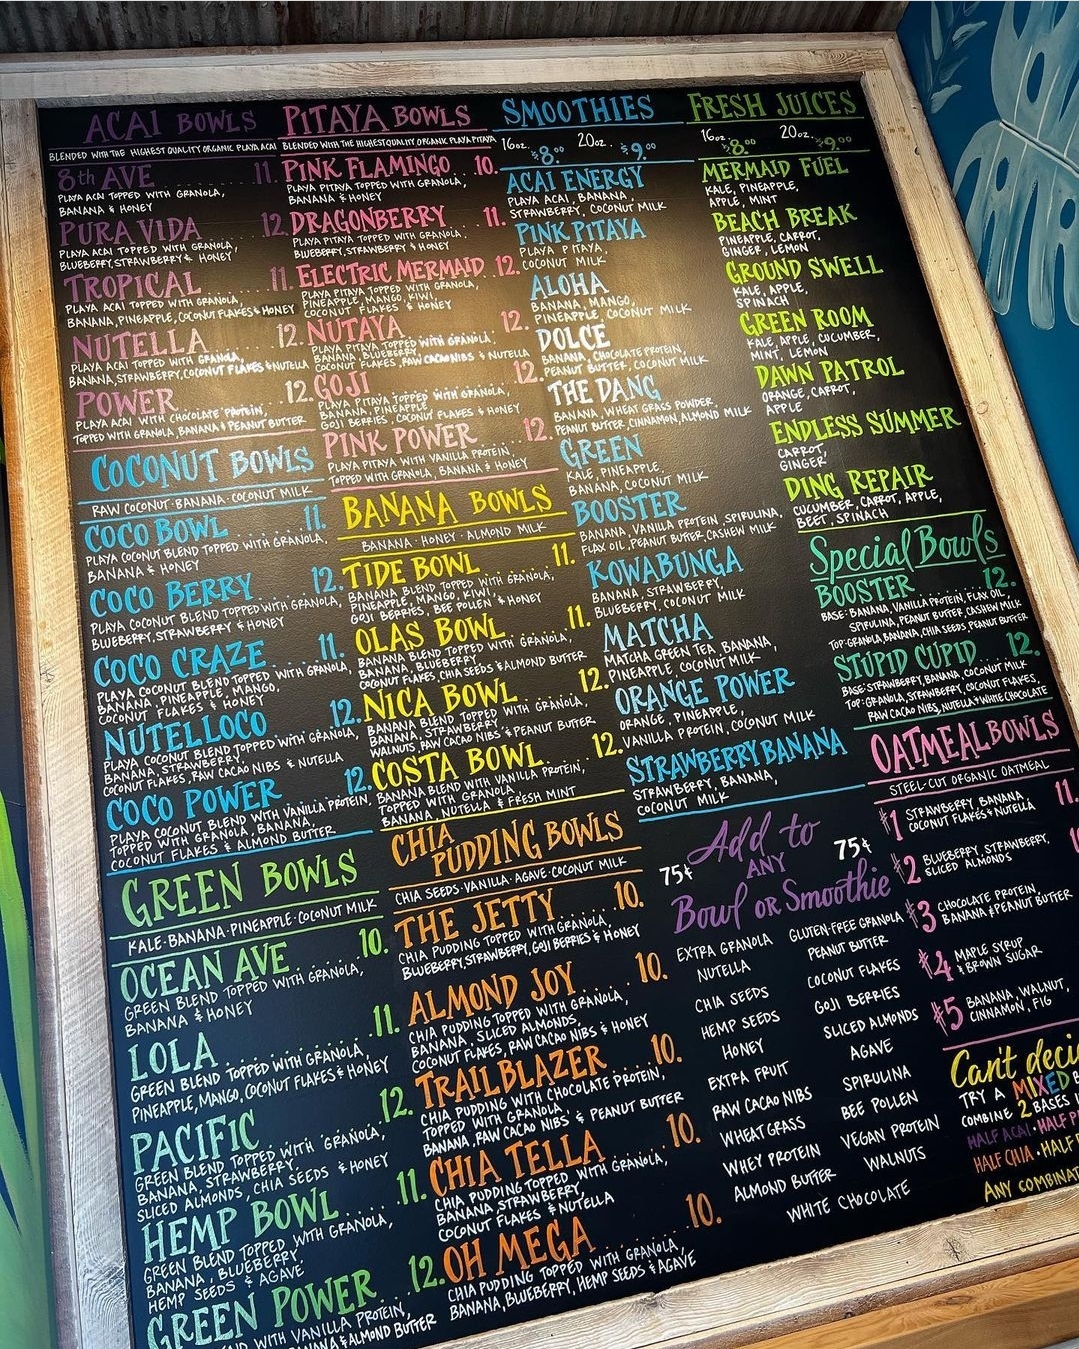 ACAI BOWLS
BLENDED WITH THE HIGHEST QUALITY ORGANIC PLAYA ACAI
8th AVE 11.
PLAYA ACAI TOPPED WITH GRANOLA,
BANANA & HONEY
PURA VIDA 12.
PLAYA ACAI TOPPED WITH GRANOLA,
BLUEBERRY, STRAWBERRY & HONEY
TROPICAL 11.
PLAYA ACAI TOPPED WITH GRANOLA,
BANANA, PINEAPPLE, COCONUT FLAKES & HONEY
NUTELLA 12.
PLAYA ACAI TOPPED WITH GRANOLA,
BANANA, STRAWBERRY, COCONUT FLAKES & NUTELLA
POWER 12.
PLAYA ACAI WITH CHOCOLATE PROTEIN,
TOPPED WITH GRANOLA, BANANA & PEANUT BUTTER
COCONUT BOWLS
RAW COCONUT · BANANA · COCONUT MILK
COCO BOWL 11.
PLAYA COCONUT BLEND TOPPED WITH GRANOLA,
BANANA & HONEY
COCO BERRY 12.
PLAYA COCONUT BLEND TOPPED WITH GRANOLA,
BLUEBERRY, STRAWBERRY & HONEY
COCO CRAZE 11.
PLAYA COCONUT BLEND TOPPED WITH GRANOLA,
BANANA, PINEAPPLE, MANGO,
COCONUT FLAKES & HONEY
NUTELLOCO 12.
PLAYA COCONUT BLEND TOPPED WITH GRANOLA,
BANANA, STRAWBERRY,
COCONUT FLAKES, RAW CACAO NIBS & NUTELLA
COCO POWER 12.
PLAYA COCONUT BLEND WITH VANILLA PROTEIN,
TOPPED WITH GRANOLA, BANANA,
COCONUT FLAKES & ALMOND BUTTER
GREEN BOWLS
KALE · BANANA · PINEAPPLE · COCONUT MILK
OCEAN AVE 10.
GREEN BLEND TOPPED WITH GRANOLA,
BANANA & HONEY
LOLA 11.
GREEN BLEND TOPPED WITH GRANOLA,
PINEAPPLE, MANGO, COCONUT FLAKES & HONEY
PACIFIC 12.
GREEN BLEND TOPPED WITH GRANOLA,
BANANA, STRAWBERRY,
SLICED ALMONDS, CHIA SEEDS & HONEY
HEMP BOWL 11.
GREEN BLEND TOPPED WITH GRANOLA,
BANANA, BLUEBERRY,
HEMP SEEDS & AGAVE
GREEN POWER 12.
WITH VANILLA PROTEIN,
BANANA & ALMOND BUTTER
PITAYA BOWLS
BLENDED WITH THE HIGHEST QUALITY ORGANIC PLAYA PITAYA
PINK FLAMINGO 10.
PLAYA PITAYA TOPPED WITH GRANOLA,
BANANA & HONEY
DRAGONBERRY 11.
PLAYA PITAYA TOPPED WITH GRANOLA,
BLUEBERRY, STRAWBERRY & HONEY
ELECTRIC MERMAID 12.
PLAYA PITAYA TOPPED WITH GRANOLA,
PINEAPPLE, MANGO, KIWI,
COCONUT FLAKES & HONEY
NUTAYA 12.
PLAYA PITAYA TOPPED WITH GRANOLA,
BANANA, BLUEBERRY,
COCONUT FLAKES, RAW CACAO NIBS & NUTELLA
GOJI 12.
PLAYA PITAYA TOPPED WITH GRANOLA,
BANANA, PINEAPPLE,
GOJI BERRIES, COCONUT FLAKES & HONEY
PINK POWER 12.
PLAYA PITAYA WITH VANILLA PROTEIN,
TOPPED WITH GRANOLA, BANANA & HONEY
BANANA BOWLS
BANANA · HONEY · ALMOND MILK
TIDE BOWL 11.
BANANA BLEND TOPPED WITH GRANOLA,
PINEAPPLE, MANGO, KIWI,
GOJI BERRIES, BEE POLLEN & HONEY
OLAS BOWL 11.
BANANA BLEND TOPPED WITH GRANOLA,
BANANA, BLUEBERRY,
COCONUT FLAKES, CHIA SEEDS & ALMOND BUTTER
NICA BOWL 12.
BANANA BLEND TOPPED WITH GRANOLA,
BANANA, STRAWBERRY,
WALNUTS, RAW CACAO NIBS & PEANUT BUTTER
COSTA BOWL 12.
BANANA BLEND WITH VANILLA PROTEIN,
TOPPED WITH GRANOLA,
BANANA, NUTELLA & FRESH MINT
CHIA
PUDDING BOWLS
CHIA SEEDS · VANILLA · AGAVE · COCONUT MILK
THE JETTY 10.
CHIA PUDDING TOPPED WITH GRANOLA,
BLUEBERRY, STRAWBERRY, GOJI BERRIES & HONEY
ALMOND JOY 10.
CHIA PUDDING TOPPED WITH GRANOLA,
BANANA, SLICED ALMONDS,
COCONUT FLAKES, RAW CACAO NIBS & HONEY
TRAILBLAZER 10.
CHIA PUDDING WITH CHOCOLATE PROTEIN,
TOPPED WITH GRANOLA,
BANANA, RAW CACAO NIBS & PEANUT BUTTER
CHIA TELLA 10.
CHIA PUDDING TOPPED WITH GRANOLA,
BANANA STRAWBERRY,
COCONUT FLAKES & NUTELLA
OH MEGA 10.
CHIA PUDDING TOPPED WITH GRANOLA,
BANANA, BLUEBERRY, HEMP SEEDS & AGAVE
SMOOTHIES
16oz. $8.00 20oz. $9.00
ACAI ENERGY
PLAYA ACAI, BANANA,
STRAWBERRY, COCONUT MILK
PINK PITAYA
PLAYA PITAYA,
COCONUT MILK
ALOHA
BANANA, MANGO,
PINEAPPLE, COCONUT MILK
DOLCE
BANANA, CHOCOLATE PROTEIN,
PEANUT BUTTER, COCONUT MILK
THE DANG
BANANA, WHEAT GRASS POWDER,
PEANUT BUTTER, CINNAMON, ALMOND MILK
GREEN
KALE, PINEAPPLE,
BANANA, COCONUT MILK
BOOSTER
BANANA, VANILLA PROTEIN, SPIRULINA,
FLAX OIL, PEANUT BUTTER, CASHEW MILK
KOWABUNGA
BANANA, STRAWBERRY,
BLUEBERRY, COCONUT MILK
MATCHA
MATCHA GREEN TEA, BANANA,
PINEAPPLE, COCONUT MILK
ORANGE POWER
ORANGE, PINEAPPLE,
VANILLA PROTEIN, COCONUT MILK
STRAWBERRY BANANA
STRAWBERRY, BANANA,
COCONUT MILK
Add to
75¢ ANY 75¢
Bowl OR Smoothie
EXTRA GRANOLA
NUTELLA
CHIA SEEDS
HEMP SEEDS
HONEY
EXTRA FRUIT
RAW CACAO NIBS
WHEATGRASS
WHEY PROTEIN
ALMOND BUTTER
GLUTEN-FREE GRANOLA
PEANUT BUTTER
COCONUT FLAKES
GOJI BERRIES
SLICED ALMONDS
AGAVE
SPIRULINA
BEE POLLEN
VEGAN PROTEIN
WALNUTS
WHITE CHOCOLATE
FRESH JUICES
16oz. $8.00 20oz. $9.00
MERMAID FUEL
KALE, PINEAPPLE,
APPLE, MINT
BEACH BREAK
PINEAPPLE, CARROT,
GINGER, LEMON
GROUND SWELL
KALE, APPLE,
SPINACH
GREEN ROOM
KALE, APPLE, CUCUMBER,
MINT, LEMON
DAWN PATROL
ORANGE, CARROT,
APPLE
ENDLESS SUMMER
CARROT,
GINGER
DING REPAIR
CUCUMBER, CARROT, APPLE,
BEET, SPINACH
Special Bowls
BOOSTER 12.
BASE: BANANA, VANILLA PROTEIN, FLAX OIL,
SPIRULINA, PEANUT BUTTER CASHEW MILK
TOP: GRANOLA BANANA, CHIA SEEDS PEANUT BUTTER
STUPID CUPID 12.
BASE: STRAWBERRY, BANANA, COCONUT MILK
TOP: GRANOLA, STRAWBERRY, COCONUT FLAKES,
RAW CACAO NIBS, NUTELLA & WHITE CHOCOLATE
OATMEAL BOWLS
STEEL-CUT ORGANIC OATMEAL
#1 STRAWBERRY, BANANA, 11.
COCONUT FLAKES & NUTELLA
#2 BLUEBERRY, STRAWBERRY,
SLICED ALMONDS
#3 CHOCOLATE PROTEIN,
BANANA & PEANUT BUTTER
#4 MAPLE SYRUP
& BROWN SUGAR
#5 BANANA, WALNUT,
CINNAMON, FIG
Can't deci
TRY A MIXED B
COMBINE 2 BASES I
HALF ACAI · HALF P
HALF CHIA · HALF
ANY COMBINAT